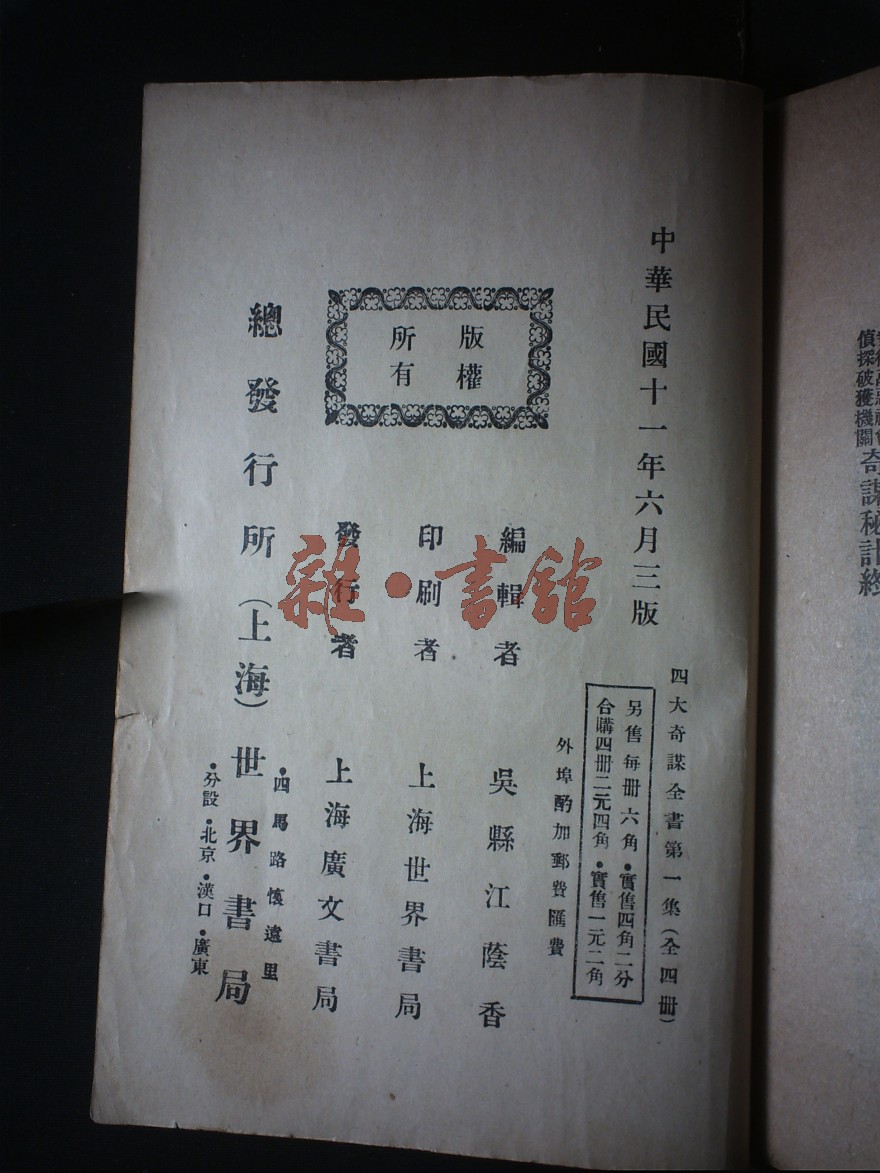 偵探破獲機關
奇謀秘計終
中華民國十一年六月三版
四大奇謀全書第一集（全四冊）
另售每冊六角•實售四角二分
合購四冊二元四角•實售一元二角
外埠酌加郵費匯費
版權
所有
編輯者 吳縣江蔭香
印刷者 上海世界書局
發行者 上海廣文書局
總發行所（上海）世界書局
•四馬路懷遠里
•分設•北京•漢口•廣東
雜•書館